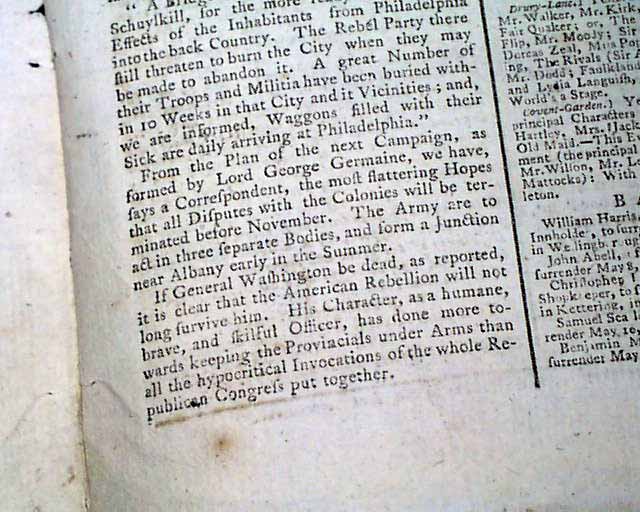 Schuylkill, for the more
Effects of the Inhabitants from Philadelphia
into the back Country. The Rebel Party there
ſtill threaten to burn the City when they may
be made to abandon it. A great Number of
their Troops and Militia have been buried with-
in 10 Weeks in that City and it Vicinities; and,
we are informed, Waggons filled with their
Sick are daily arriving at Philadelphia."
From the Plan of the next Campaign, as
formed by Lord George Germaine, we have,
ſays a Correſpondent, the moſt flattering Hopes
that all Diſputes with the Colonies will be ter-
minated before November. The Army are to
act in three ſeparate Bodies, and form a Junction
near Albany early in the Summer.
If General Waſhington be dead, as reported,
it is clear that the American Rebellion will not
long ſurvive him. His Character, as a humane,
brave, and ſkilful Officer, has done more to-
wards keeping the Proviacials under Arms than
all the hypocritical Invocations of the whole Re-
publican Congreſs put together.
Drury-Lane.]
Mr. Walker, Mr. Kin
Fair Quaker; or, The
Flip, Mr. Moody; Sir
Dorcas Zeal, Miſs
ing, The Rivals (Sir
Mr. Dodd; Faulkland
and Lydia Languiſh,
World's a Stage.
Covent-Garden.)
principal Characters
Hartley, Mrs. Jack
Old Maid.—This E
ment (the principal
Mr. Wilſon, Mr. L
Mattocks): With
leton.
B A
William Harris
Innholder, to ſurr
in Wellingb
John Abell,
ſurrender May 8,
Chriſtopher
Shopkeeper, to ſ
in Kettering,
Samuel Sea
render May 10
Benjamin M
ſurrender May